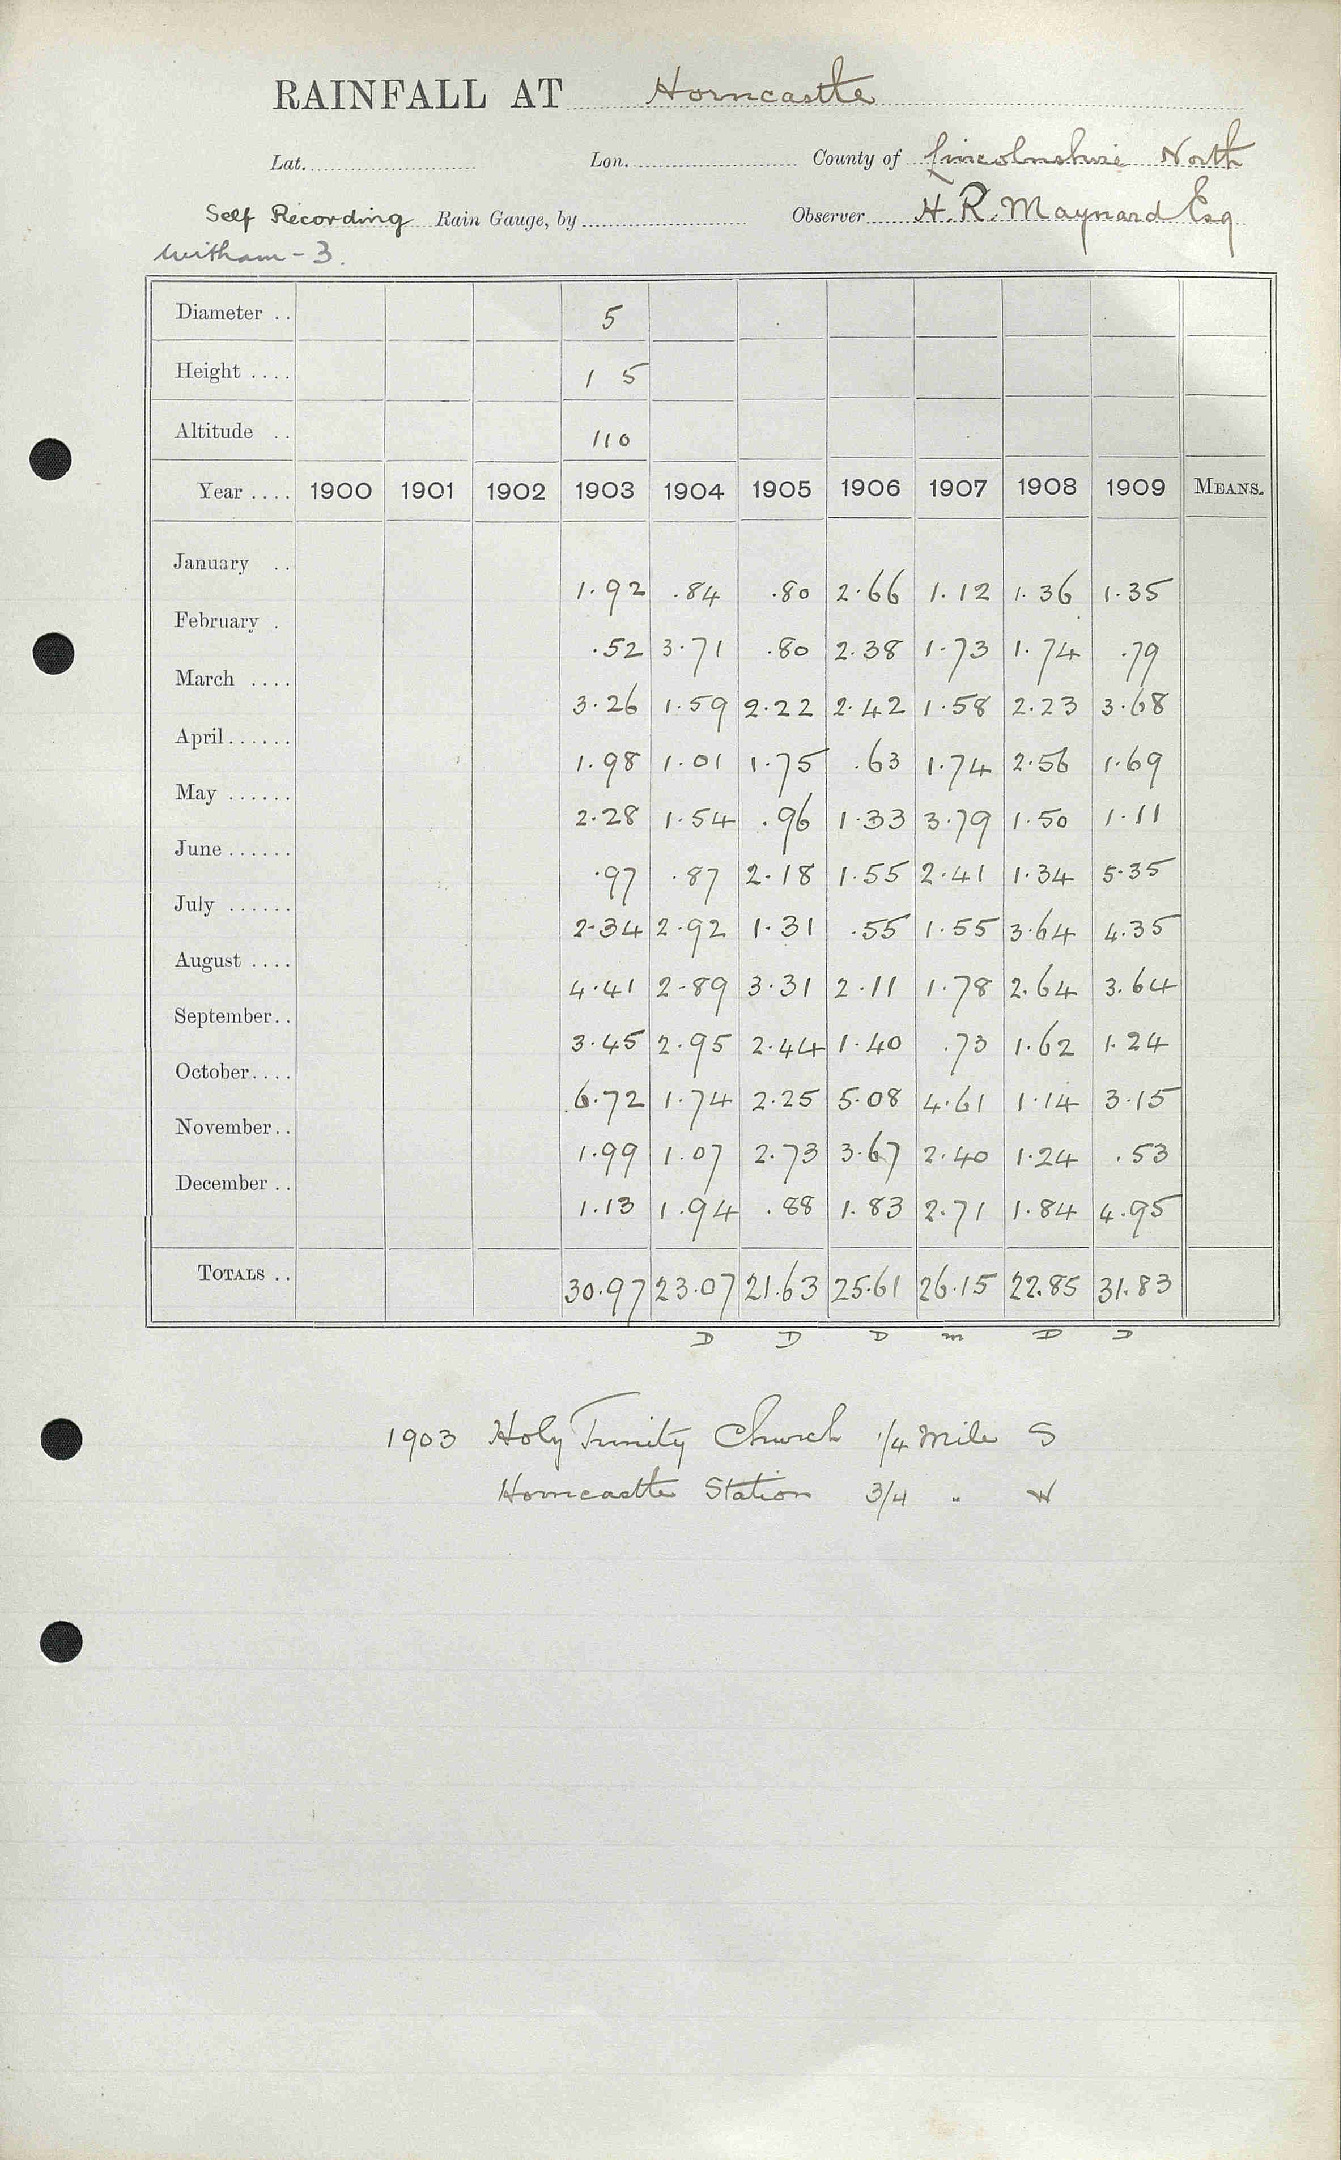 RAINFALL AT Horncastle
Lat. Lon. County of Lincolnshire North
Self Recording Rain Gauge, by Observer H. R. Maynard Esq
Witham - 3.
Diameter .. 5
Height .... 1 5
Altitude .. 110
Year .... 1900 1901 1902 1903 1904 1905 1906 1907 1908 1909 MEANS.
January .. 1.92 .84 .80 2.66 1.12 1.36 1.35
February . .52 3.71 .80 2.38 1.73 1.74 .79
March .... 3.26 1.59 2.22 2.42 1.58 2.23 3.68
April ...... 1.98 1.01 1.75 .63 1.74 2.56 1.69
May ...... 2.28 1.54 .96 1.33 3.79 1.50 1.11
June ...... .97 .87 2.18 1.55 2.41 1.34 5.35
July ...... 2.34 2.92 1.31 .55 1.55 3.64 4.35
August .... 4.41 2.89 3.31 2.11 1.78 2.64 3.64
September .. 3.45 2.95 2.44 1.40 .73 1.62 1.24
October .... 6.72 1.74 2.25 5.08 4.61 1.14 3.15
November .. 1.99 1.07 2.73 3.67 2.40 1.24 .53
December .. 1.13 1.94 .88 1.83 2.71 1.84 4.95
TOTALS .. 30.97 23.07 21.63 25.61 26.15 22.85 31.83
D D D m D D
1903 Holy Trinity Church 1/4 Mile S
Horncastle Station 3/4 " W